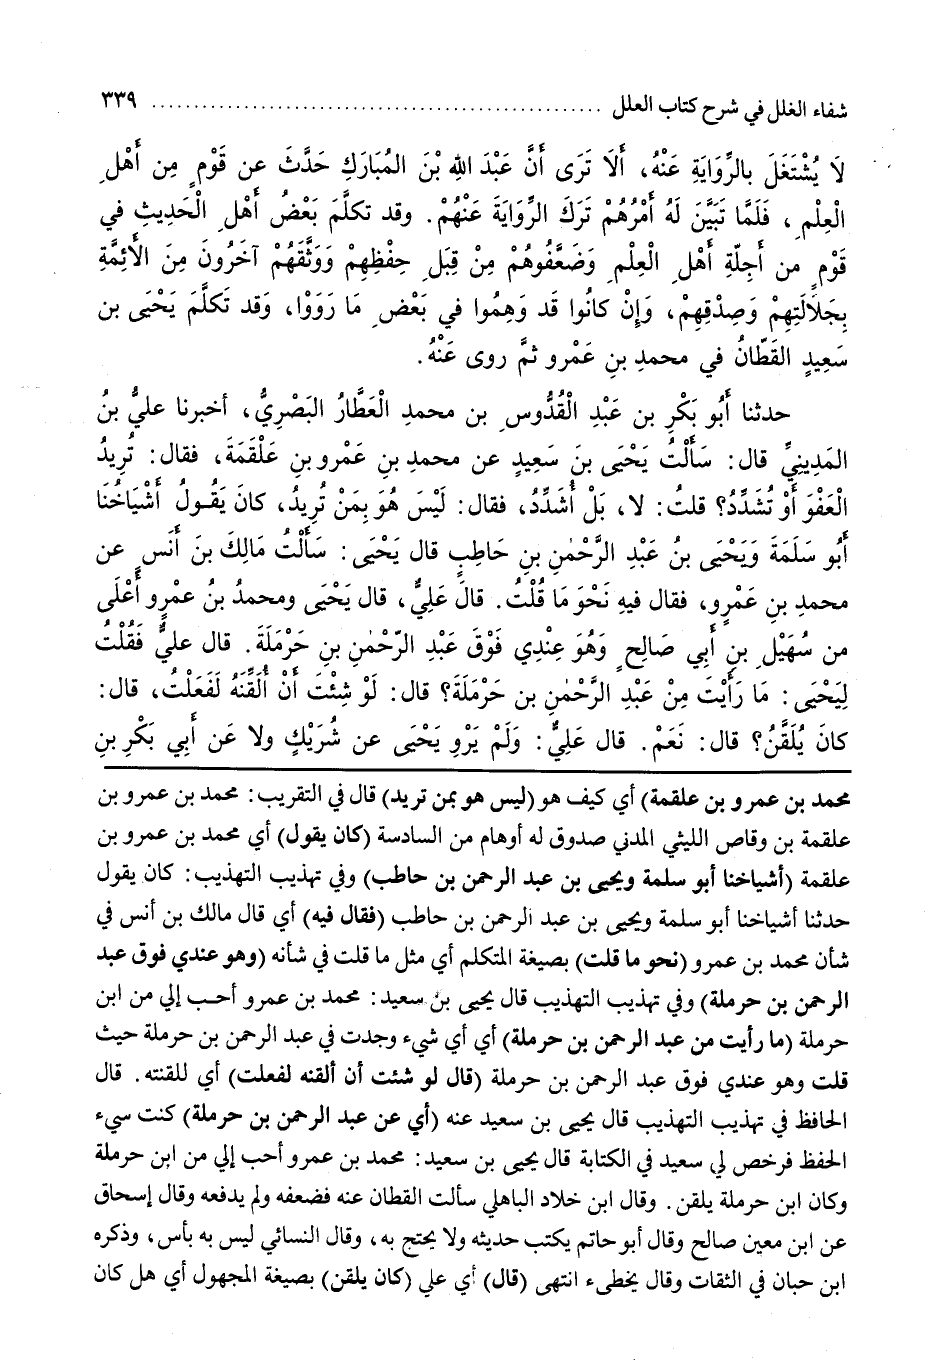 شفاء الغلل في شرح كتاب العلل ............................................................ ٣٣٩
لاَ يُشْتَغَلَ بالرِّوَايَةِ عَنْهُ، أَلَا تَرَى أَنَّ عَبْدَ اللهِ بْنَ المُبَارَكِ حَدَّثَ عن قَوْمٍ مِن أَهْلِ
الْعِلْمِ، فَلَمَّا تَبَيَّنَ لَهُ أَمْرُهُمْ تَرَكَ الرِّوَايَةَ عَنْهُمْ. وقد تكلَّمَ بَعْضُ أَهْلِ الْحَدِيثِ في
قَوْمٍ من أَجِلّةِ أَهْلِ الْعِلْمِ وَضَعَّفُوهُمْ مِنْ قِبَلِ حِفْظِهِمْ وَوَثَّقَهُمْ آخَرُونَ مِنَ الأئِمَّةِ
بِجَلَالَتِهِمْ وَصِدْقِهِمْ، وَإِنْ كانُوا قَد وَهِمُوا في بَعْضِ مَا رَوَوْا، وَقد تَكَلَّمَ يَحْيَى بن
سَعِيدٍ القَطَّانُ في محمدِ بنِ عَمْرٍو ثمَّ روى عَنْهُ.
حدثنا أَبُو بَكْرِ بن عَبْدِ الْقُدُّوسِ بن محمدِ الْعَطَّارُ البَصْرِيُّ، أخبرنا عليُّ بنُ
المَدِينِيِّ قال: سَأَلْتُ يَحْيَى بنَ سَعِيدٍ عن محمدِ بنِ عَمْرِو بنِ عَلْقَمَةَ، فقال: تُرِيدُ
الْعَفْوَ أَوْ تُشَدِّدُ؟ قلتُ: لا، بَلْ أُشَدِّدُ، فقال: لَيْسَ هُوَ بِمَنْ تُرِيدُ، كانَ يَقُولُ أَشْيَاخُنَا
أَبُو سَلَمَةَ وَيَحْيَى بنُ عَبْدِ الرَّحْمٰنِ بنِ حَاطِبٍ قال يَحْيَى: سَأَلْتُ مَالِكَ بنَ أَنَسٍ عن
محمدِ بنِ عَمْرٍو، فقال فيهِ نَحْوَ مَا قُلْتُ. قالَ عَلِيٌّ، قال يَحْيَى ومحمدُ بنُ عمْرٍو أَعْلَى
من سُهَيْلِ بنِ أَبِي صَالِحٍ وَهُوَ عِنْدِي فَوْقَ عَبْدِ الرَّحْمٰنِ بنِ حَرْمَلَةَ. قال عليٌّ فَقُلْتُ
لِيَحْيَى: مَا رَأَيْتَ مِنْ عَبْدِ الرَّحْمٰنِ بن حَرْمَلَةَ؟ قال: لَوْ شِئْتَ أَنْ أُلَقِّنَهُ لَفَعَلْتُ، قال:
كانَ يُلَقَّنُ؟ قال: نَعَمْ. قال عَلِيٌّ: وَلَمْ يَرْوِ يَحْيَى عن شُرَيْكٍ ولا عَن أَبِي بَكْرِ بنِ
محمد بن عمرو بن علقمة) أي كيف هو (ليس هو بمن تريد) قال في التقريب: محمد بن عمرو بن
علقمة بن وقاص الليثي المدني صدوق له أوهام من السادسة (كان يقول) أي محمد بن عمرو بن
علقمة (أشياخنا أبو سلمة ويحيى بن عبد الرحمن بن حاطب) وفي تهذيب التهذيب: كان يقول
حدثنا أشياخنا أبو سلمة ويحيى بن عبد الرحمن بن حاطب (فقال فيه) أي قال مالك بن أنس في
شأن محمد بن عمرو (نحو ما قلت) بصيغة المتكلم أي مثل ما قلت في شأنه (وهو عندي فوق عبد
الرحمن بن حرملة) وفي تهذيب التهذيب قال يحيى بن سعيد: محمد بن عمرو أحب إلي من ابن
حرملة (ما رأيت من عبد الرحمن بن حرملة) أي أي شيء وجدت في عبد الرحمن بن حرملة حيث
قلت وهو عندي فوق عبد الرحمن بن حرملة (قال لو شئت أن ألقنه لفعلت) أي للقنته. قال
الحافظ في تهذيب التهذيب قال يحيى بن سعيد عنه (أي عن عبد الرحمن بن حرملة) كنت سيء
الحفظ فرخص لي سعيد في الكتابة قال يحيى بن سعيد: محمد بن عمرو أحب إلي من ابن حرملة
وكان ابن حرملة يلقن. وقال ابن خلاد الباهلي سألت القطان عنه فضعفه ولم يدفعه وقال إسحاق
عن ابن معين صالح وقال أبو حاتم يكتب حديثه ولا يحتج به، وقال النسائي ليس به بأس، وذكره
ابن حبان في الثقات وقال يخطىء انتهى (قال) أي علي (كان يلقن) بصيغة المجهول أي هل كان